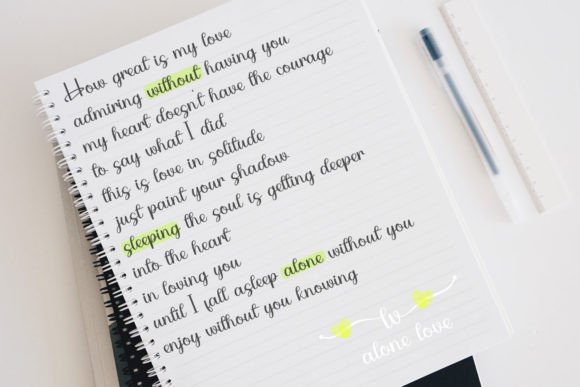 How great is my love
admiring without having you
my heart doesn't have the courage
to say what I did
this is love in solitude
just paint your shadow
sleeping the soul is getting deeper
into the heart
in loving you
until I fall asleep alone without you
enjoy without you knowing
lv
alone love